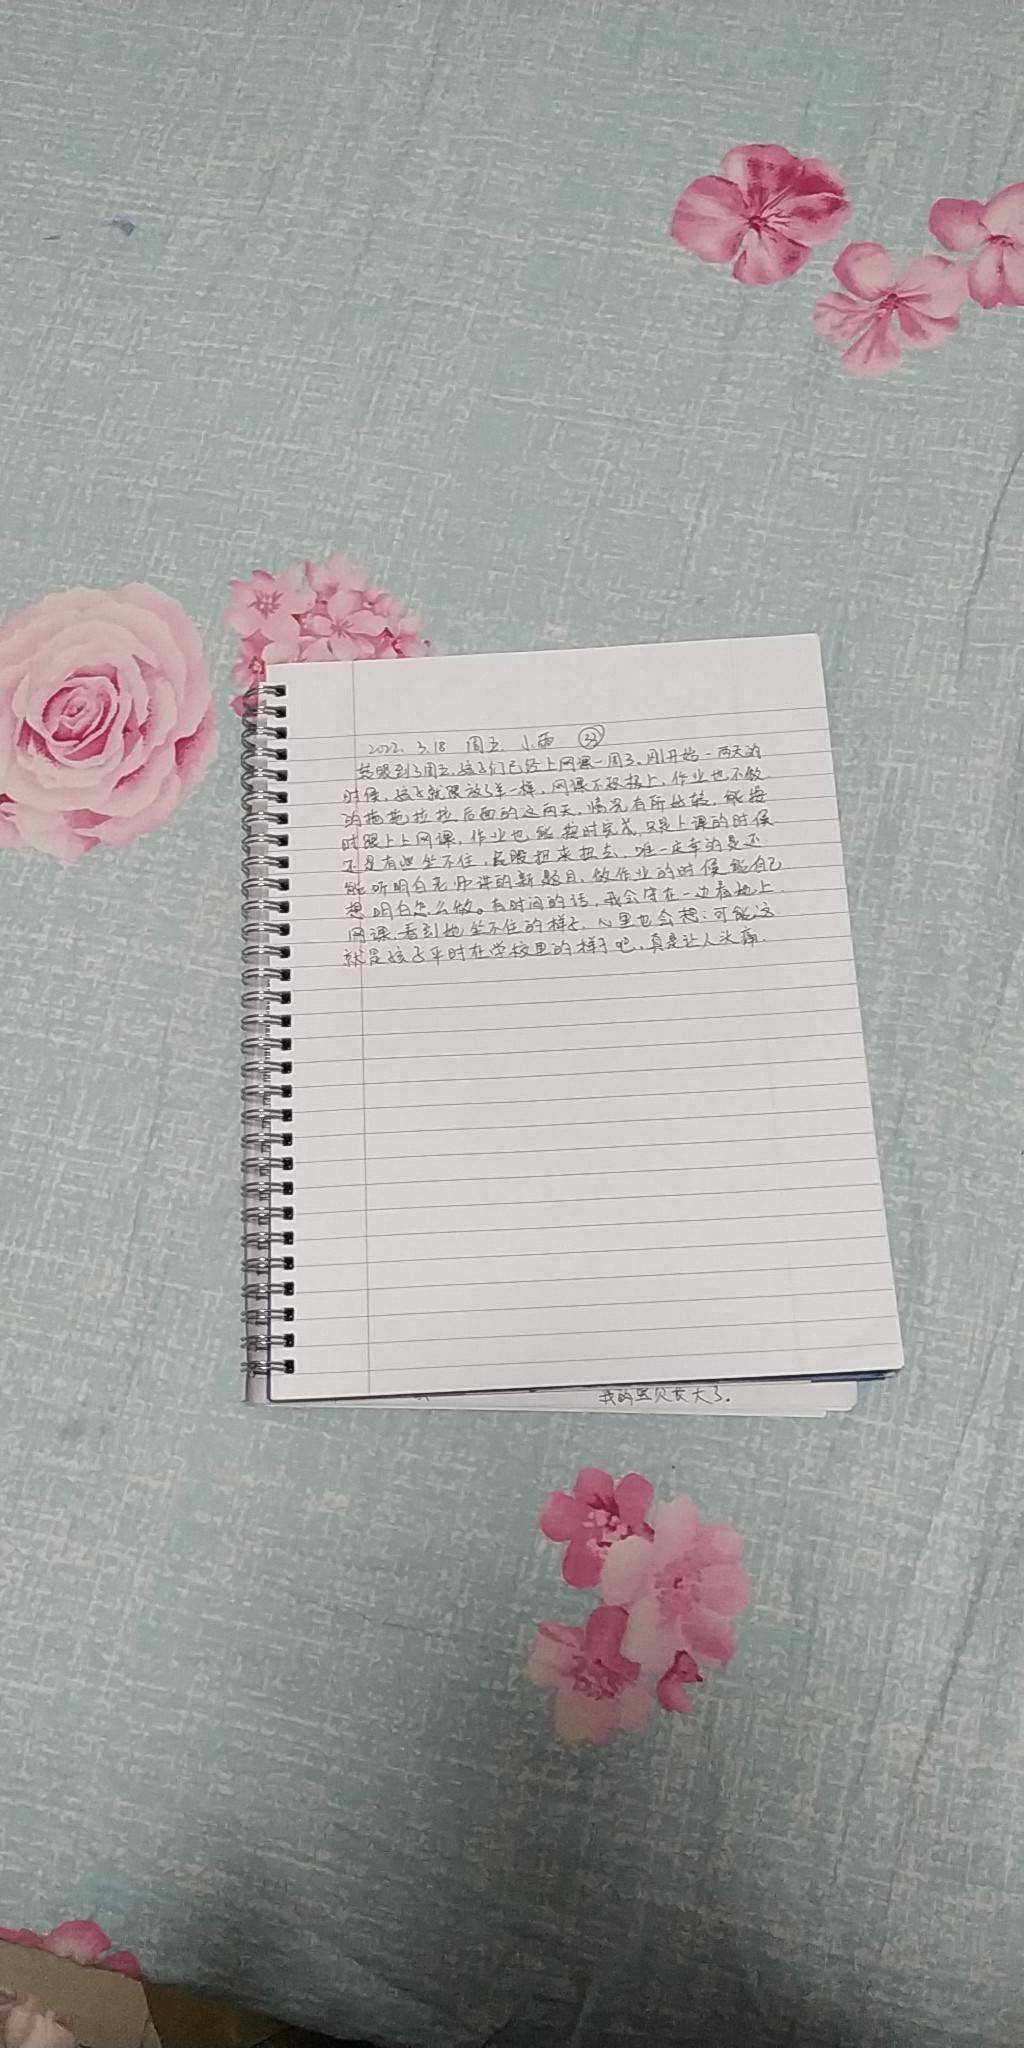 2022. 3.18 周五. 小雨 ㉝
转眼到了周五,孩子们已经上网课一周了。刚开始一两天的
时候,孩子就跟放了羊一样,网课不积极上,作业也不做
的拖拖拉拉,后面的这两天,情况有所好转,能按
时跟上上网课,作业也能按时完成,只是上课的时候
还是有些坐不住,屁股扭来扭去,唯一庆幸的是还
能听明白老师讲的新题目,做作业的时候能自己
想明白怎么做。有时间的话,我会守在一边看她上
网课,看到她坐不住的样子,心里也会想:可能这
就是孩子平时在学校里的样子吧,真是让人头痛.
我的宝贝长大了.